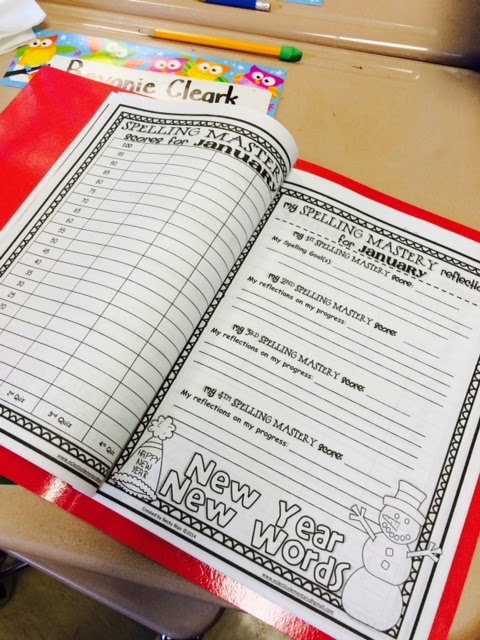 Beyonie Cleark
SPELLING MASTERY
scores for January
100
95
90
85
80
75
70
65
60
55
50
45
40
35
30
25
20
2nd Quiz
3rd Quiz
4th Quiz
my SPELLING MASTERY reflection
for January
my 1st SPELLING MASTERY score:
My Spelling Goal(s):
my 2nd SPELLING MASTERY score:
My reflections on my progress:
my 3rd SPELLING MASTERY score:
My reflections on my progress:
my 4th SPELLING MASTERY score:
My reflections on my progress:
HAPPY
NEW
YEAR
New Year
New Words
Created by Becky Blair ©2014